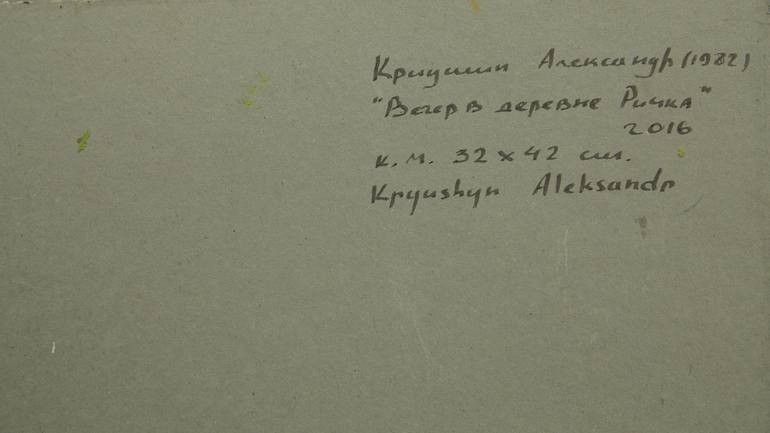 Криушин Александр (1982)
"Вечер в деревне Ричка"
2016
к. м. 32 x 42 см.
Kpyushyn Aleksandr